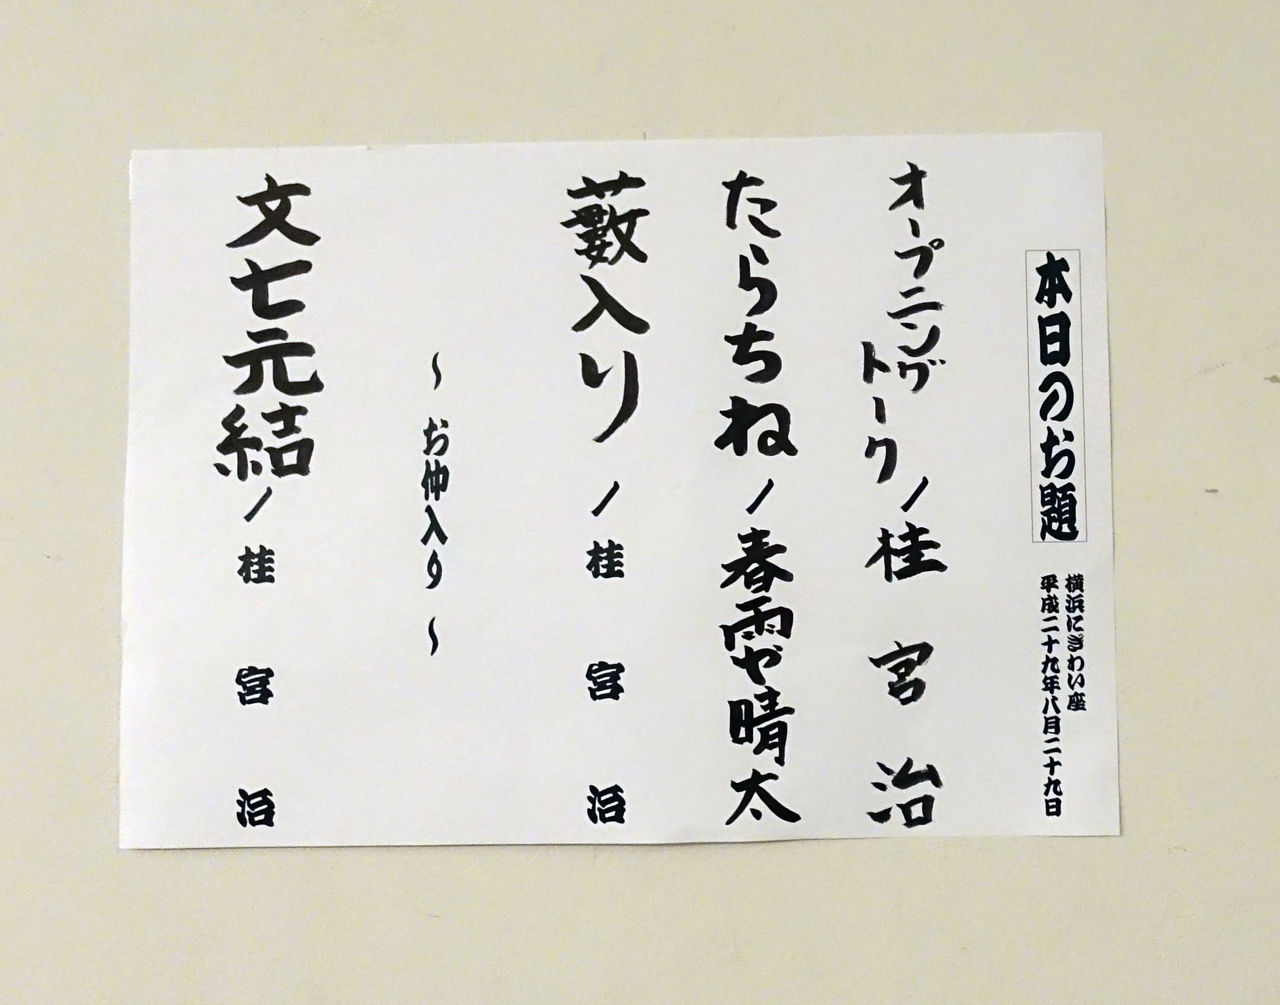 本日のお題
横浜にぎわい座
平成二十九年八月二十九日
オープニング
トーク/桂宮治
たらちね/春雨や晴太
藪入り/桂宮治
~お仲入り~
文七元結/桂宮治